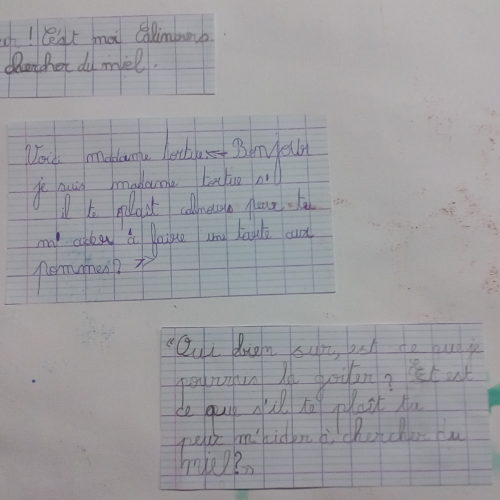 ! C'est moi Calinours
chercher du miel.
Voici madame tortue « Bonjour
je suis madame tortue s'
il te plaît calinours peux-tu
m'aider à faire une tarte aux
pommes? »
"Oui bien sur, est ce que je
pourrais la goûter? Et est
ce que s'il te plaît tu
peux m'aider à chercher du
miel?"